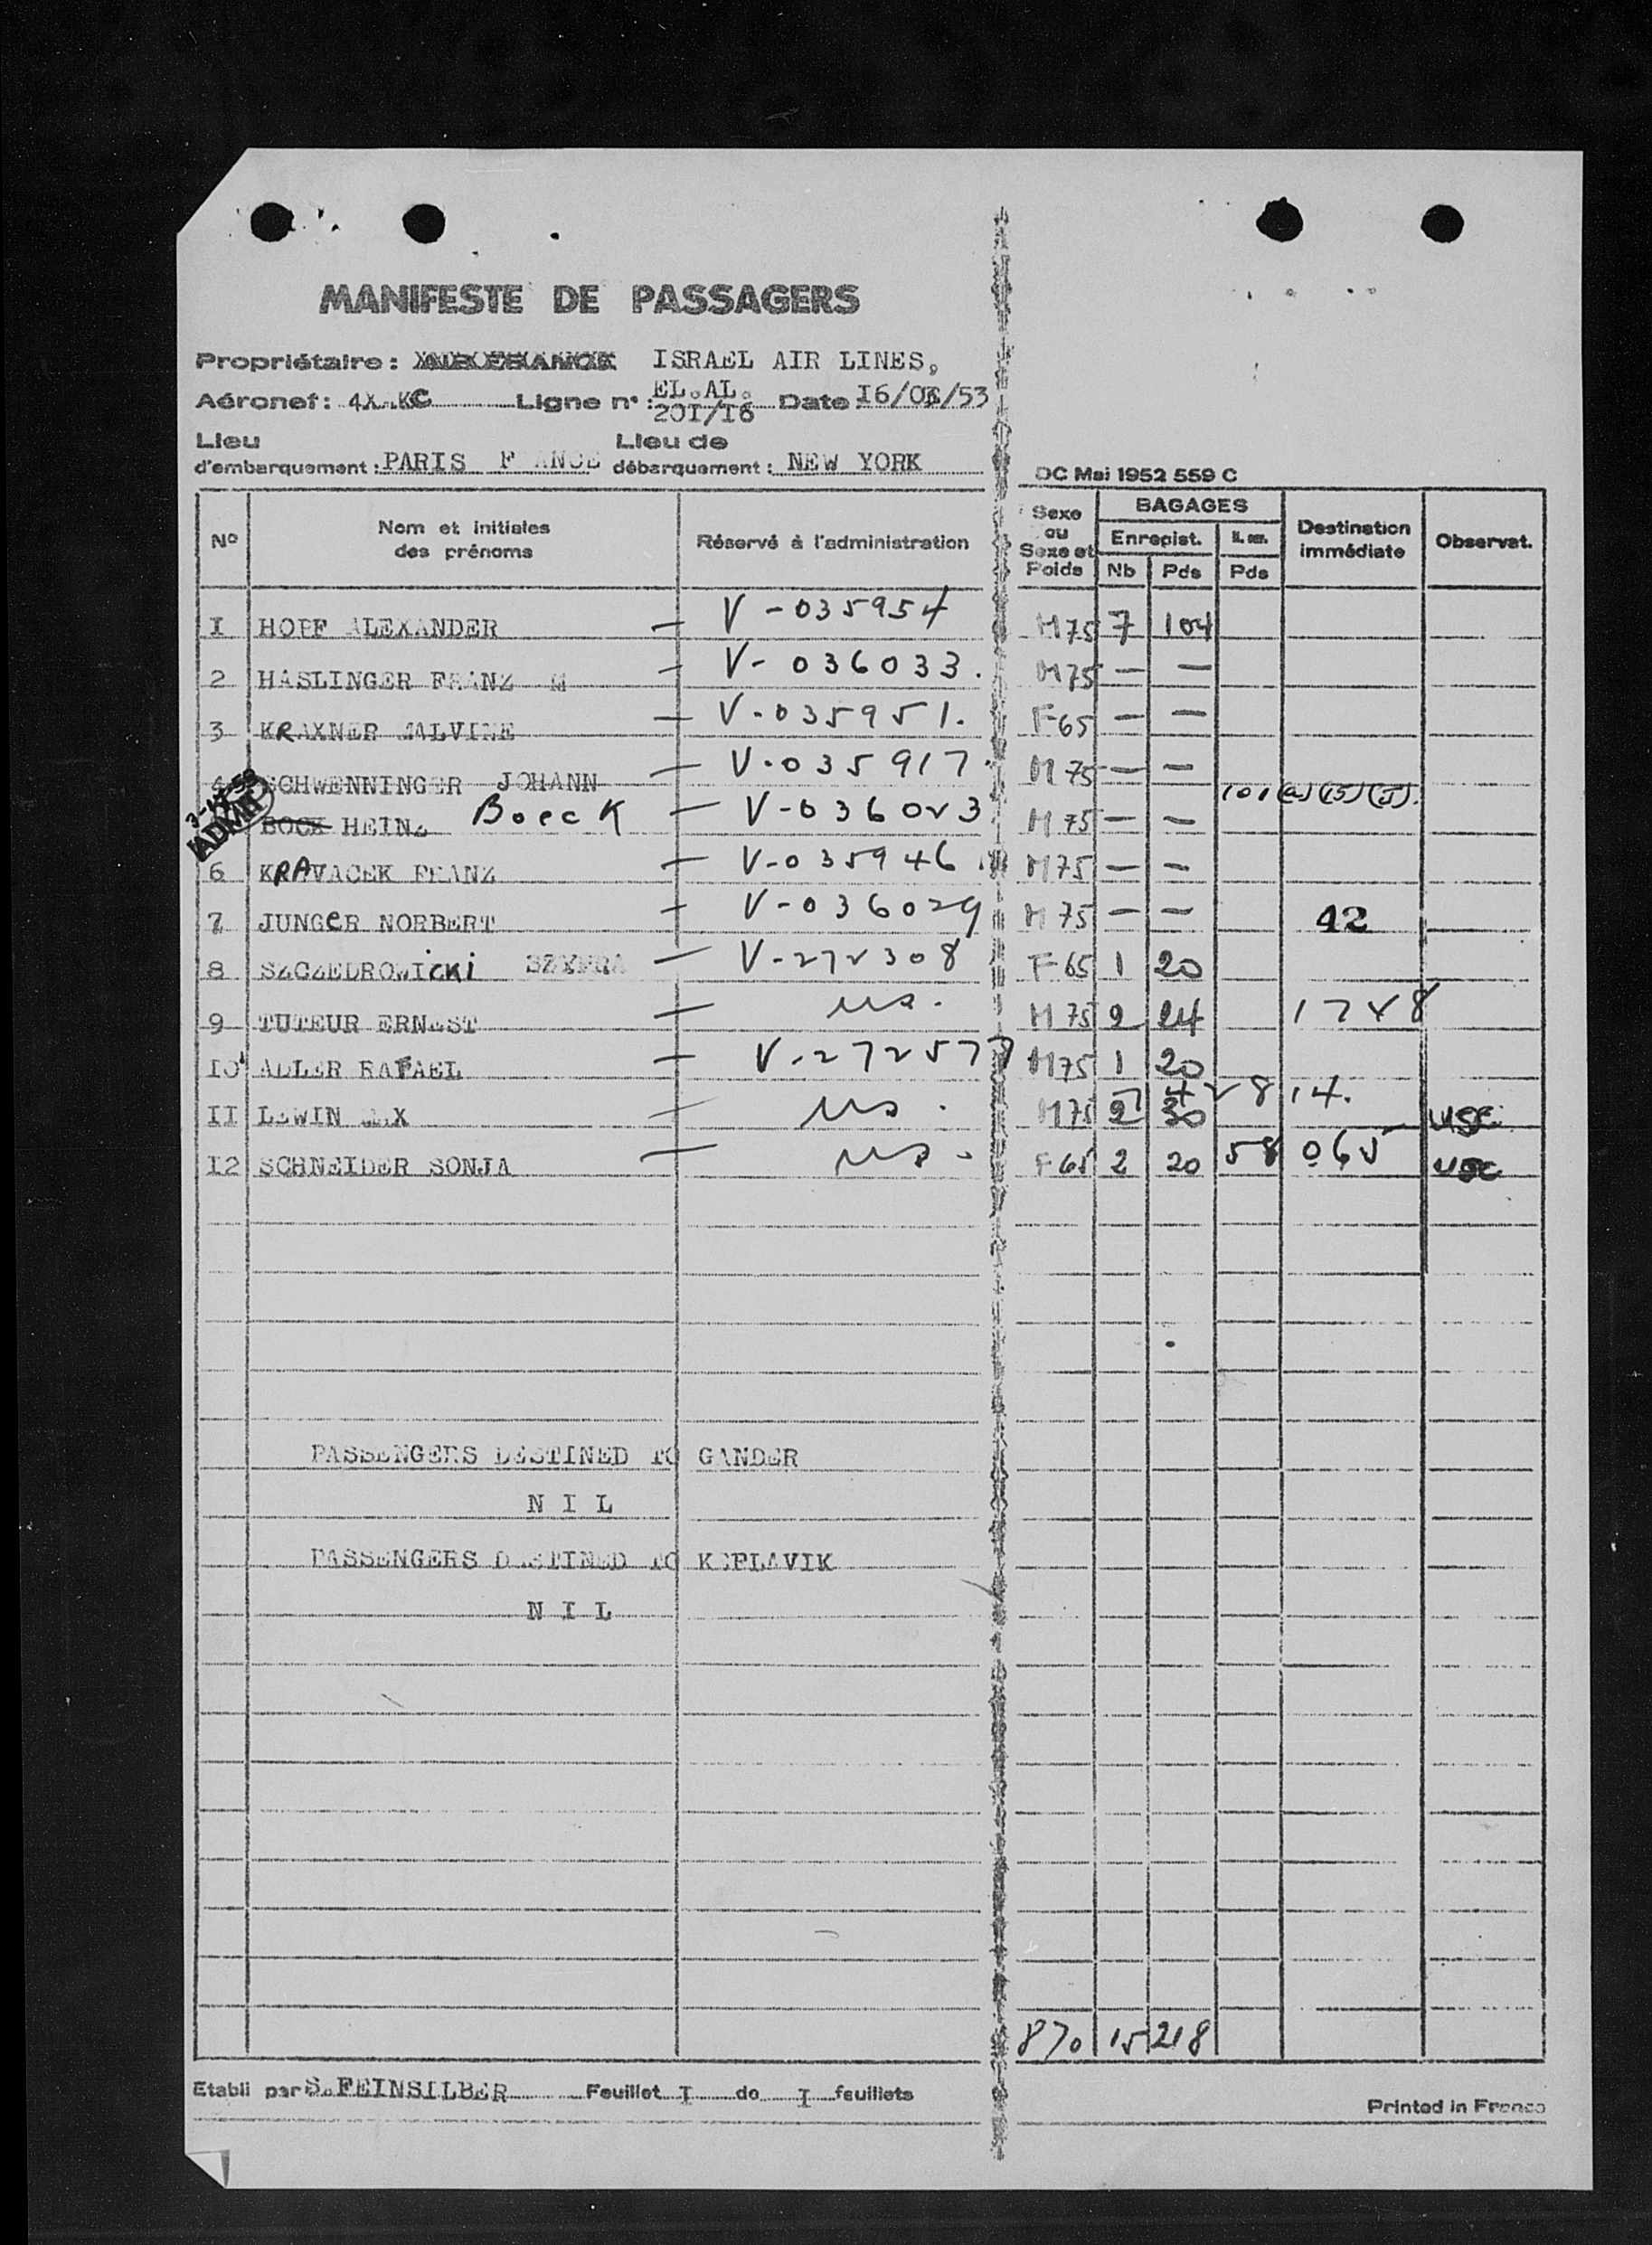 MANIFESTE DE PASSAGERS
Propriétaire: AIR FRANCE ISRAEL AIR LINES,
EL.AL.
Aéronef: 4X.KC Ligne n°: 201/I6 Date I6/03/53
Lieu d'embarquement: PARIS F ANCE Lieu de débarquement: NEW YORK
DC Mai 1952 559 C
N° Nom et initiales des prénoms Réservé à l'administration Sexe ou Sexe et Poids BAGAGES Enregist. Nb Pds Pds Destination immédiate Observat.
I HOPF ALEXANDER — V-035954 M75 7 104
2 HASLINGER FRANZ M — V-036033. M75 — —
3 KRAXNER MALVINE — V-035951. F65 — —
4 SCHWENNINGER JOHANN — V-035917. M75 — —
101(a)(15)(J).
3-17-53 ADMIT BOCK HEINZ Boeck — V-036023 M75 — —
6 KRAVACEK FRANZ — V-035946 M75 — —
7 JUNGeR NORBERT — V-036029 M75 — — 42
8 SZCZEDROWicKi SZYFRA — V-272308 F65 1 20
9 TUTEUR ERNEST — us. M75 2 24 1748
IO ADLER RAFAEL — V-272577 M75 1 20
II LEWIN MAX — us. M75 2 30 2814. USC
I2 SCHNEIDER SONJA — us. F65 2 20 58 065 USC
PASSENGERS DESTINED TO GANDER
N I L
PASSENGERS DESTINED TO KEFLAVIK
N I L
870 15 218
Etabli par S.FEINSILBER Feuillet I de I feuillets
Printed in France